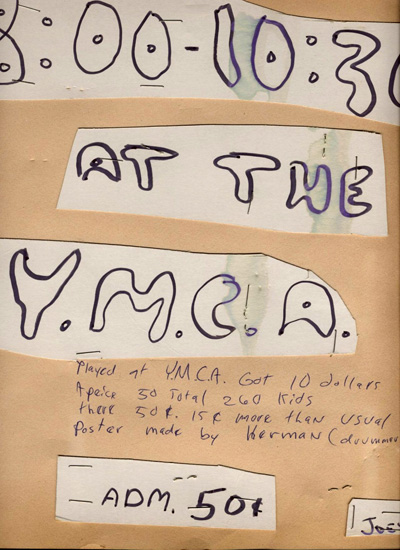 8:00-10:30
AT THE
Y.M.C.A.
Played at Y.M.C.A. Got 10 dollars
Apeice 50 Total 260 Kids
there 50¢. 15¢ more than usual
Poster made by Herman (drummer
ADM. 50¢
JOE